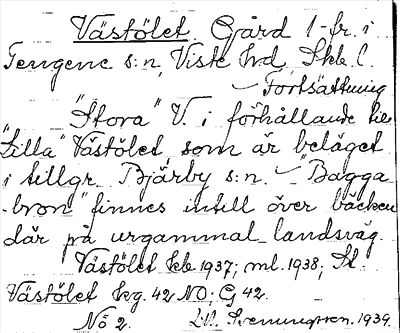 Västölet. Gård 1-fr. i
Tengene s:n, Viste hrd Skb. l.
Fortsättning
"Stora" V. i förhållande till
"Lilla" Västölet, som är beläget
i tillgr. Bjärby s:n. "Bagga
-bron" finnes intill över bäcken
där på urgammal landsväg.
Västölet Skb 1937; ml. 1938; St.
Västölet Skg. 42 NO; G 42.
Nö 2. 1939.